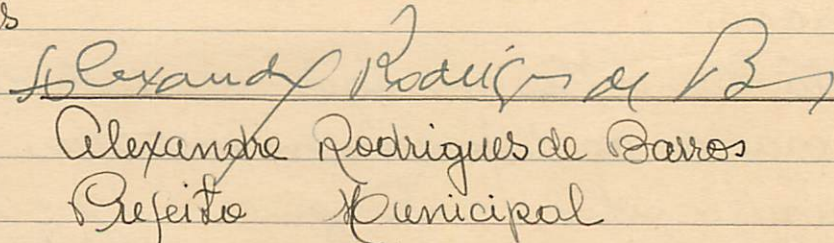 s
Alexandre Rodrigues de B
Alexandre Rodrigues de Barros
Prefeito Municipal